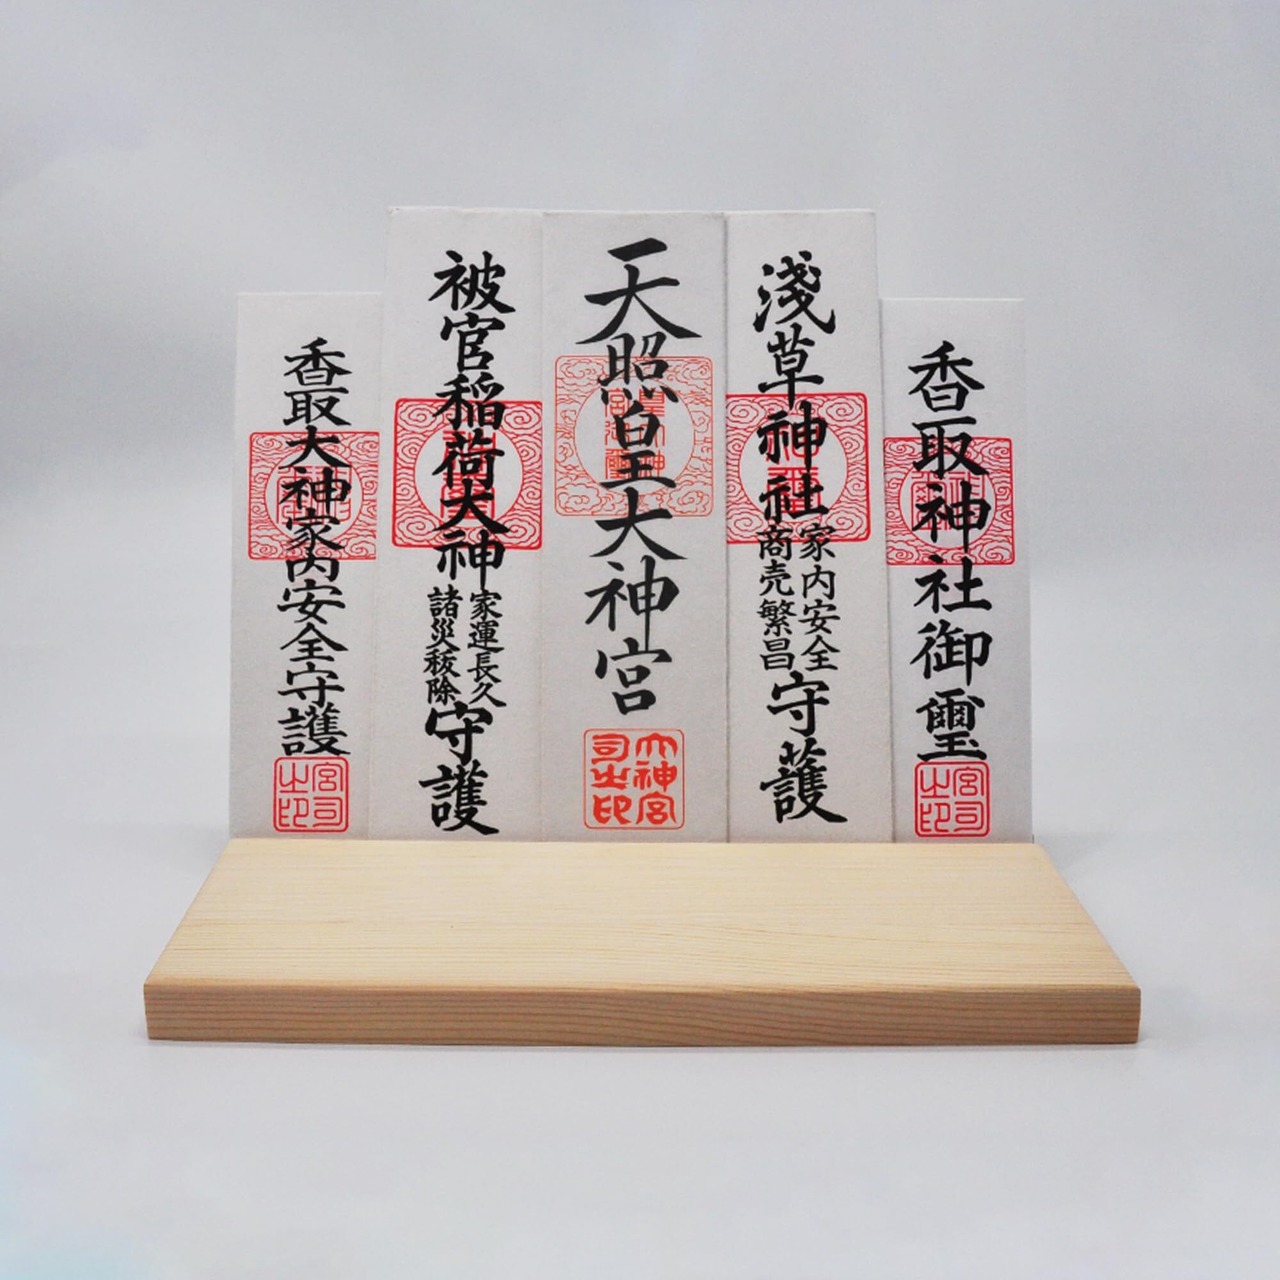 香取大神家内安全守護
宮司之印
被官稲荷大神
家運長久
諸災祓除
守護
天照皇大神宮
大神宮司之印
淺草神社
家内安全
商売繁昌
守護
香取神社御璽
宮司之印